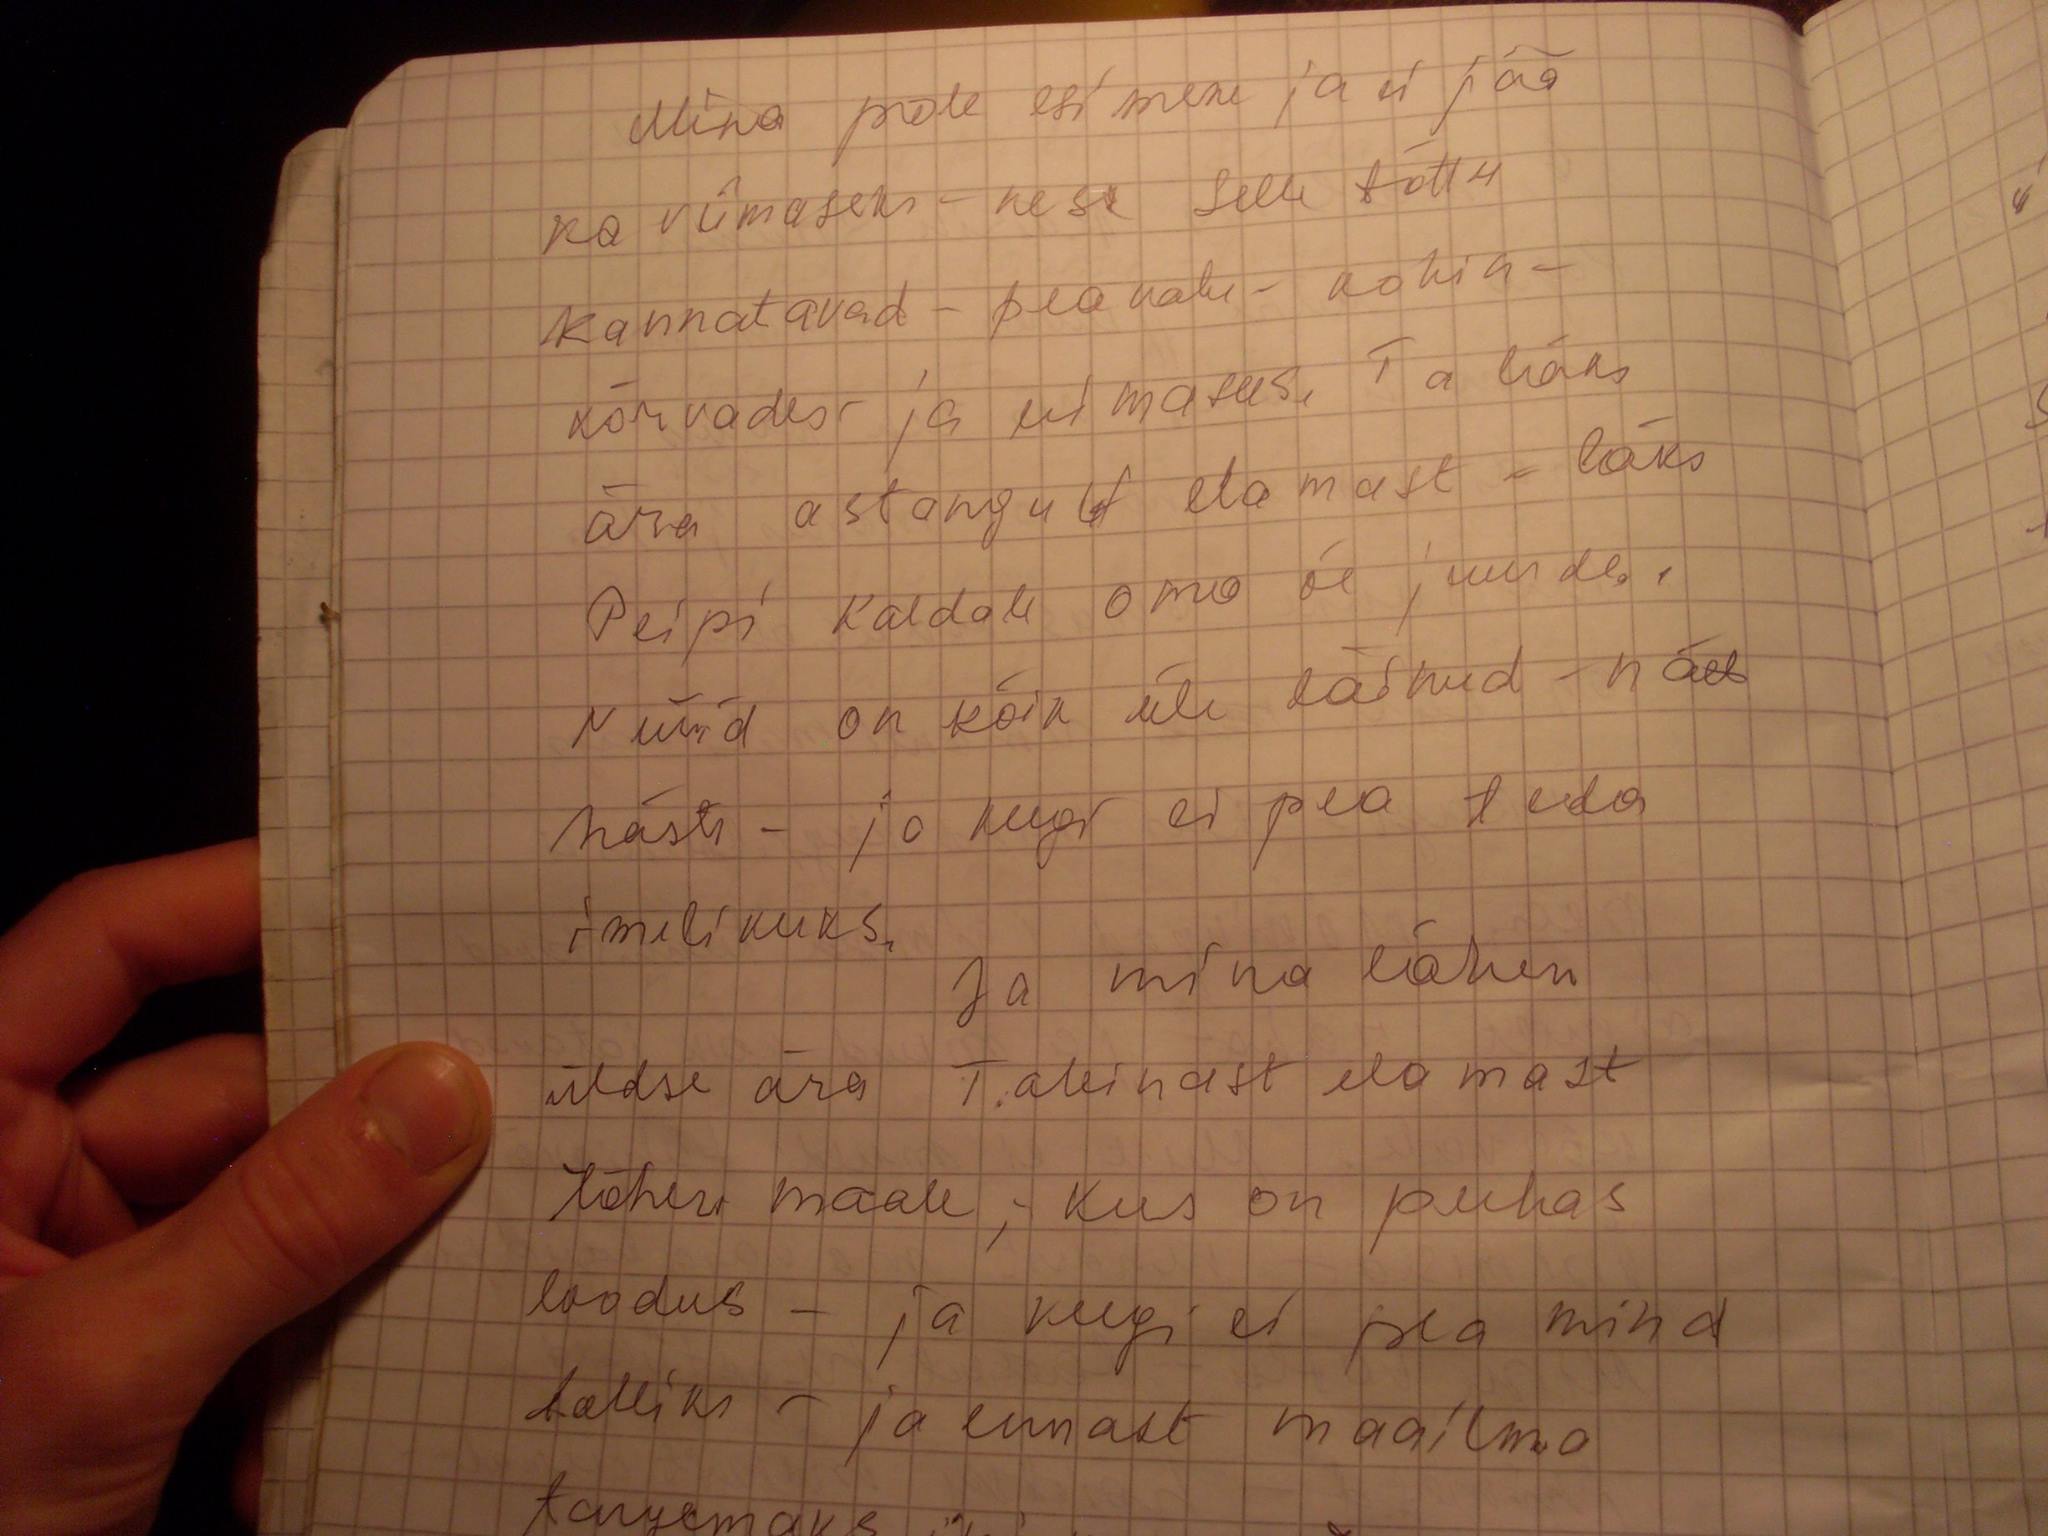 Mina pole esimene ja ei jää
ka viimaseks - kes selle tõttu
kannatavad - peavalu - kohin -
kõrvades - ja uimasus. Ta läks
ära astangult elamast - läks
Peipsi kaldale oma õe juurde.
Nüüd on kõik üle läinud - näeb
hästi - ja keegi ei pea teda
imelikuks.
Ja mina lähen
üldse ära Tallinast elamast
lähen maale, - kus on puhas
loodus - ja keegi ei pea mind
lolliks - ja ennast maailma
targemaks